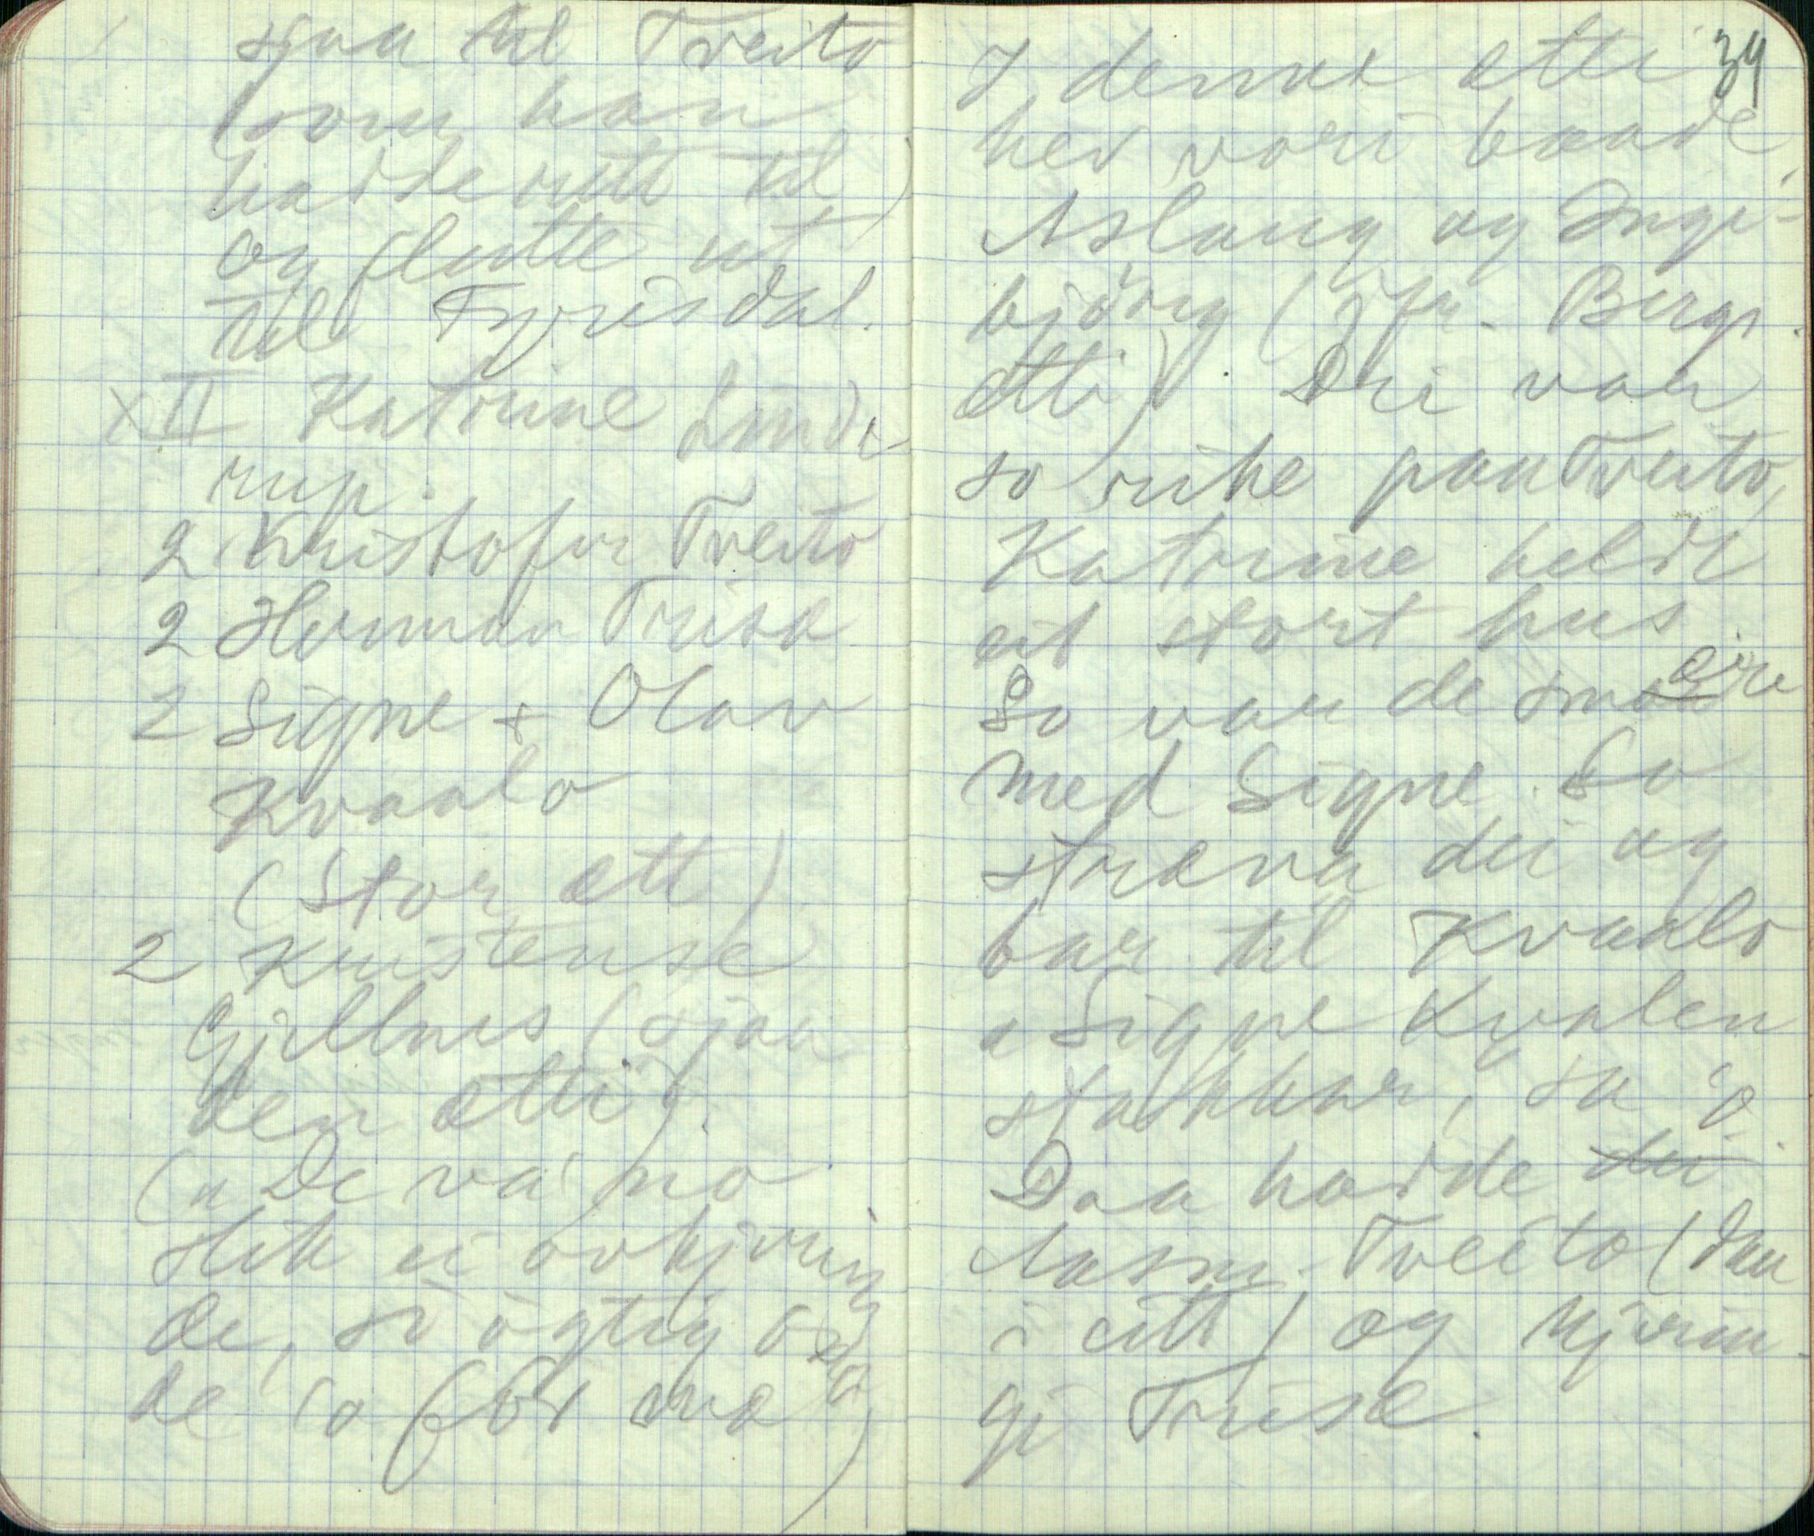 sjaa til Treito
(som han
hadde rett til)
og flutte ut
til Fyrisdal.
XII Katrine Lind-
rup.
2 Kristofer Treito
2 Herman Trisæ
2 Signe + Olav
Kvaalo
(Stor ætt)
2 Kristense
Gjellnes (sjaa
den ætti).
(De va no
slik ei
de, so ögtig
de so for
39
I denne ætti
hev vori baade
Aslaug og Ingi-
björg (jfr. Berge
ætti). Dei var
so rike paa Treito,
Katrine heldt
eit stort hus
So var de
med Signe. So
stræva dei og
bar til Kvaalo
a Signe Kvalen
stakkar, sa 'o.
Daa hadde dei
Aasm. Treito (
i eitt) og Kjærin-
gi Trisæ.